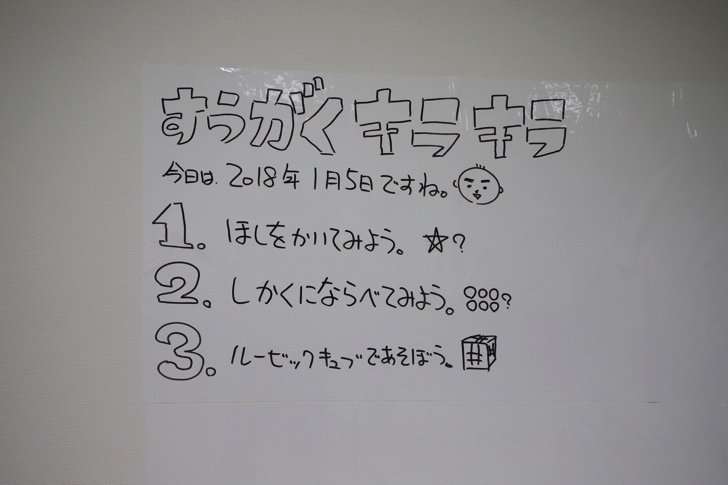 すうがくキラキラ
今日は、2018年1月5日ですね。
1. ほしをかいてみよう。☆?
2. しかくにならべてみよう。?
3. ルービックキューブであそぼう。